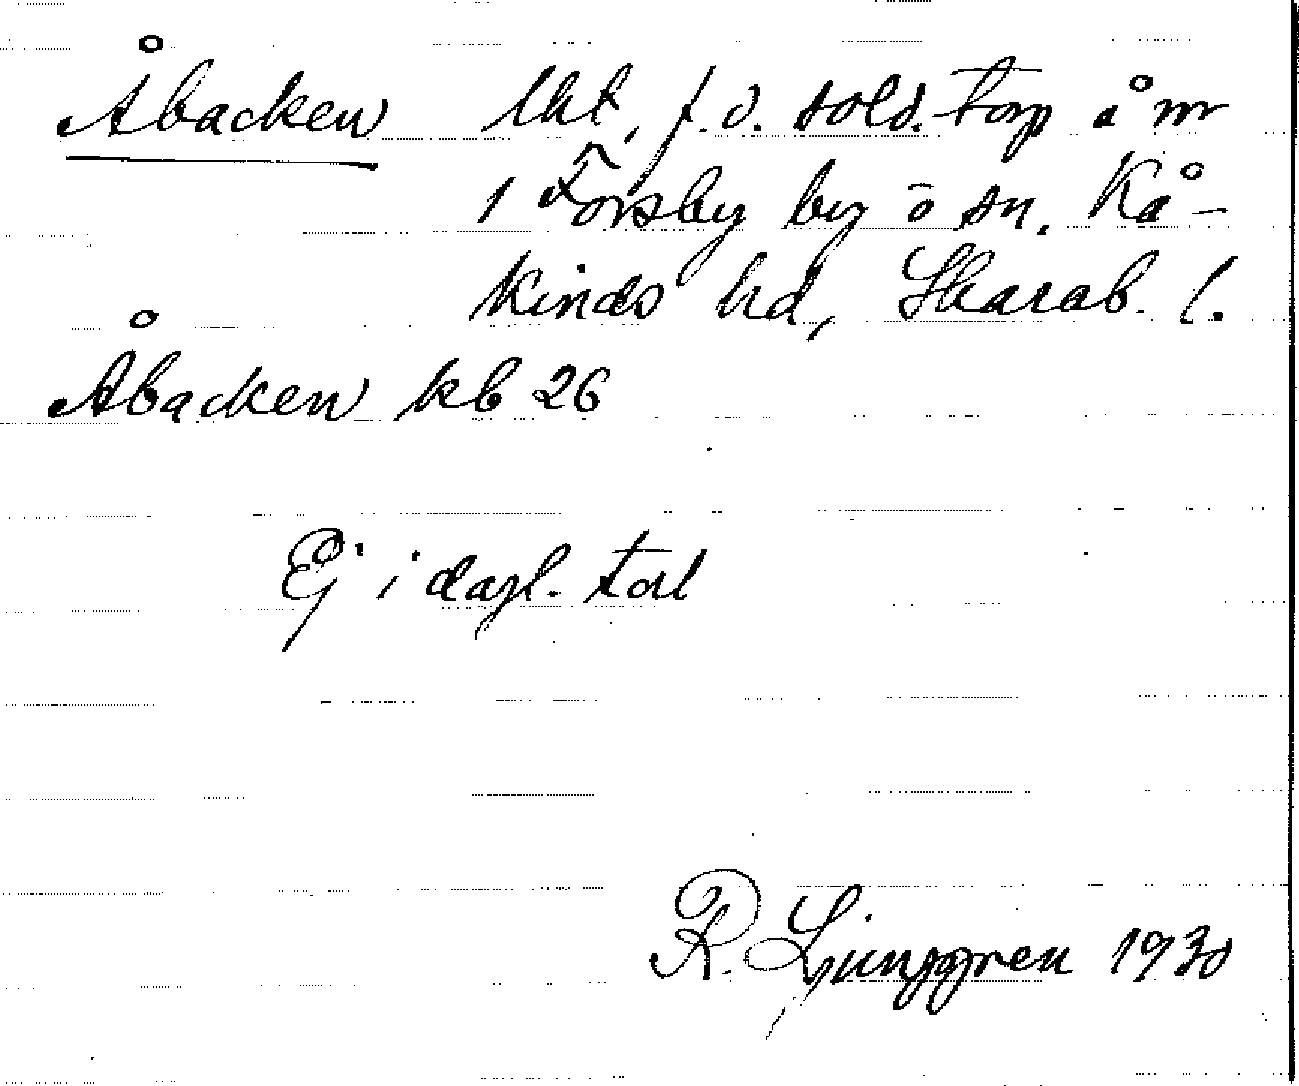 Åbacken lht, f.d. sold.torp å nr
1 Forsby by o sn. Kå-
kinds hd, Skarab. l.
Åbacken kb 26
Ej i dagl. tal
R. Ljunggren 1930